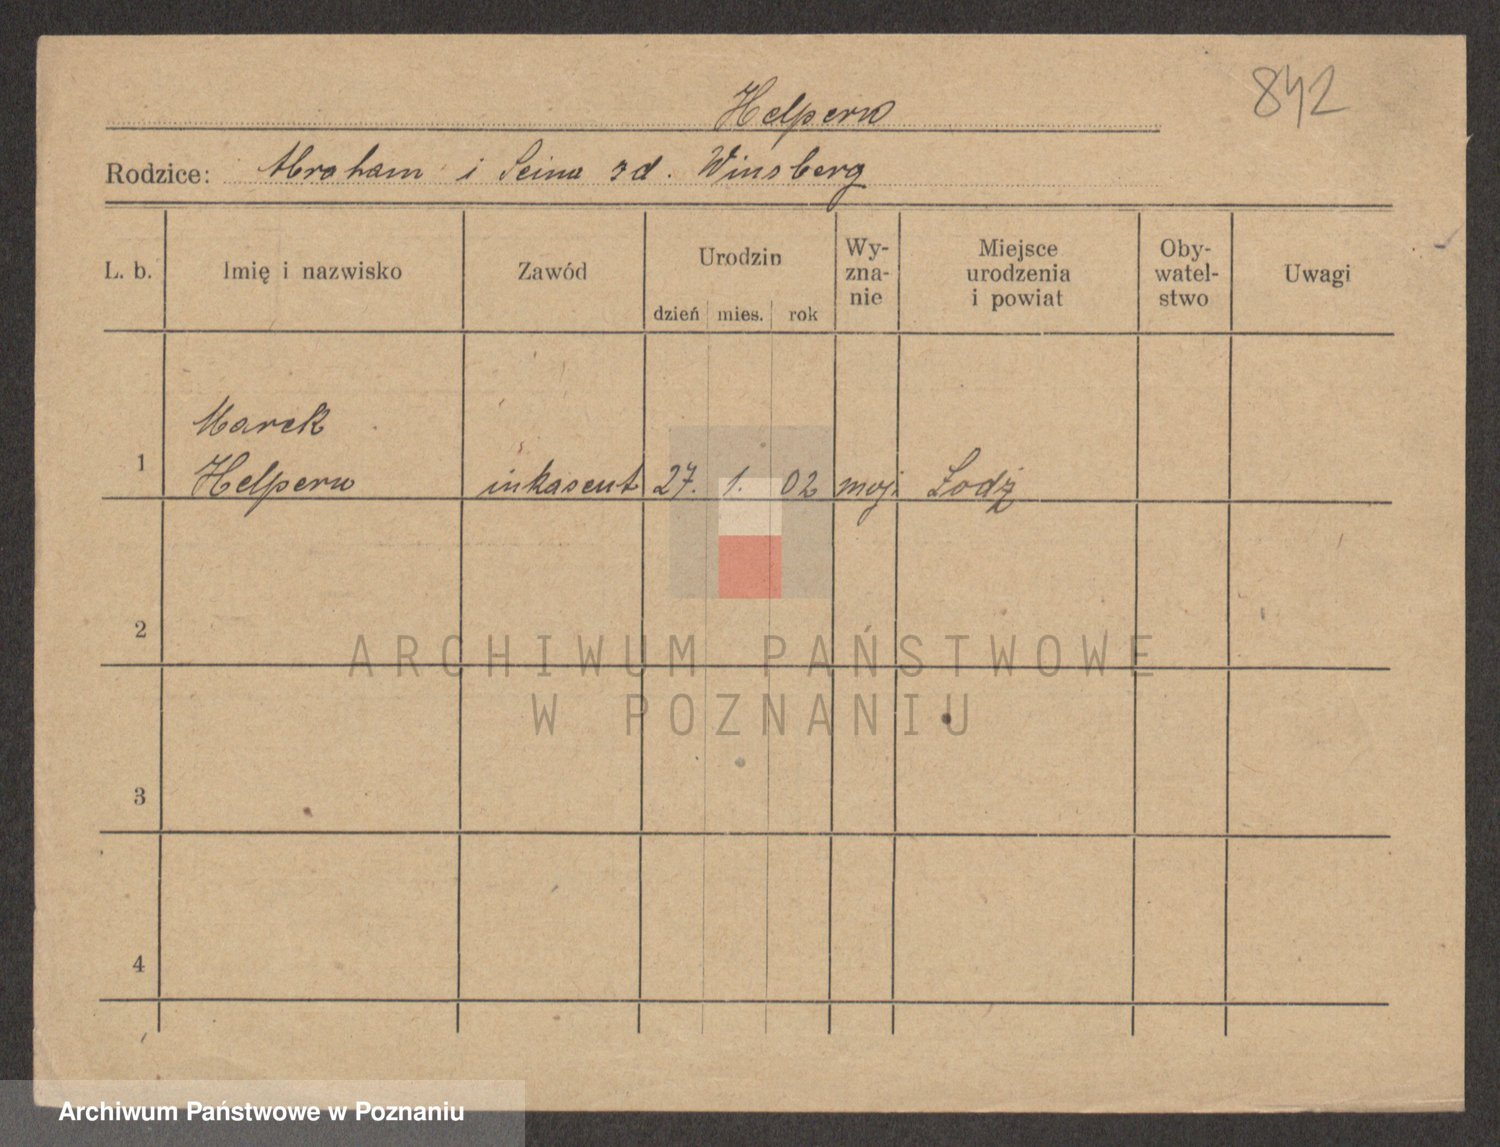 842
Helpern
Rodzice: Abraham i Seina zd. Winsberg
L. b. Imię i nazwisko Zawód Urodzin Wy-zna-nie Miejsce urodzenia i powiat Oby-watel-stwo Uwagi
dzień mies. rok
Marek
1 Helpern inkasent 27. 1. 02 moj. Łodź
2
ARCHIWUM PAŃSTWOWE
W POZNANIU
3
4
Archiwum Państwowe w Poznaniu